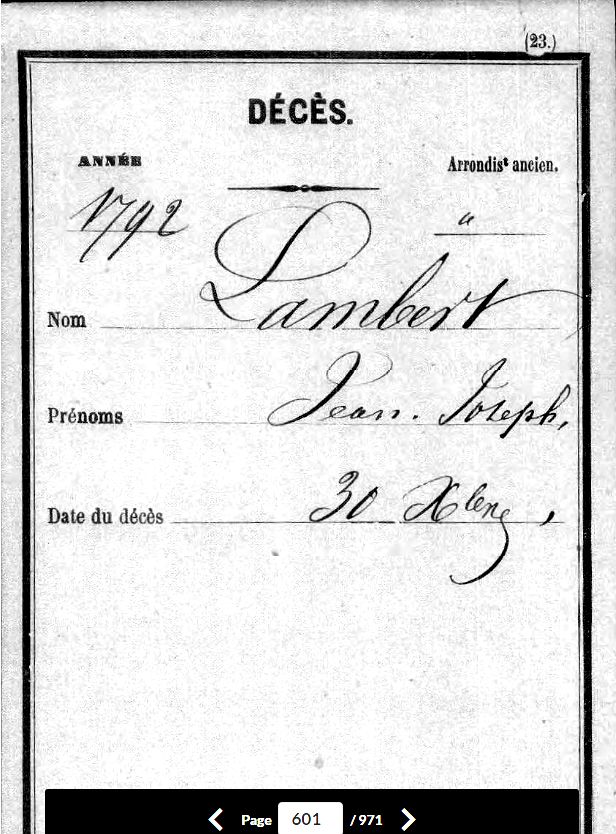 (23.)
DÉCÈS.
ANNÉE
Arrondisᵗ ancien.
1792
"
Nom Lambert
Prénoms Jean. Joseph,
Date du décès 30 Xbre,
Page 601 / 971